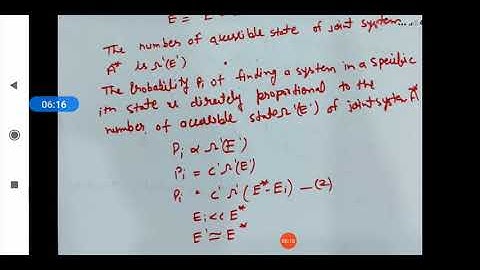 E = E
The number of accessible state of joint system
A* is Ω'(E')
The Probability Pi of finding a system in a specific
ith state is directely proportional to the
number of accessible state Ω'(E') of joint system A*
Pi ∝ Ω'(E')
Pi = C'Ω'(E')
Pi = C'Ω'(E*-Ei) —(2)
Ei << E*
E' ≃ E*
06:16